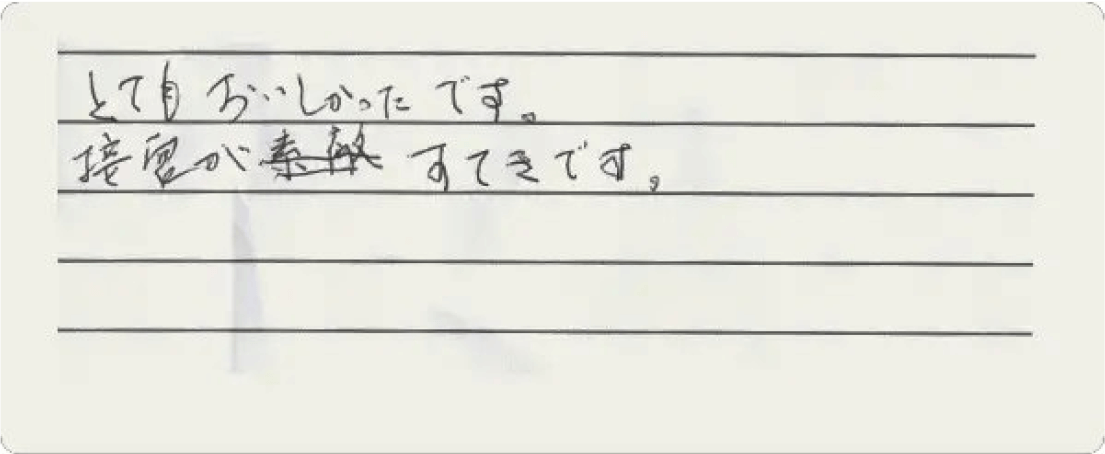 とてもおいしかったです。
接客がすてきです。